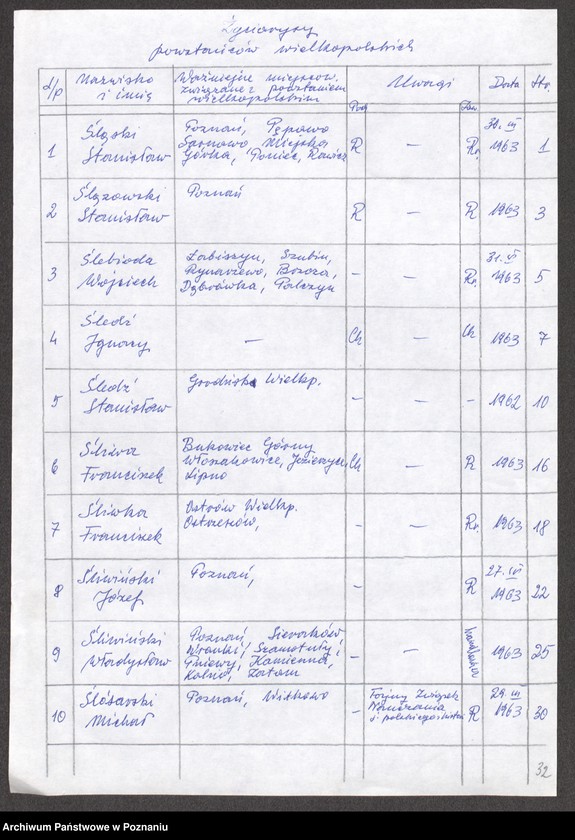 Życiorysy
powstańców wielkopolskich
L/p Nazwisko i imię Ważniejsze miejscow. związane z powstaniem wielkopolskim Uwagi Data Str.
1 Śląski Stanisław Poznań, Pępowo Sarnowa, Miejska Górka, Poniec, Rawicz R — R. 30.III 1963 1
2 Ślązowski Stanisław Poznań R — R 1963 3
3 Ślebioda Wojciech Łabiszyn, Szubin, Rynarzewo, Brzoza, Dąbrówka, Palczyn - — R. 31.VI 1963 5
4 Śledź Ignacy — Ch — Ch 1963 7
5 Śledź Stanisław Grodzisk Wielkp. - — - 1962 10
6 Śliwa Franciszek Bukowiec Górny Włoszakowice, Jezierzyce Lipno Ch — R 1963 16
7 Śliwka Franciszek Ostrów Wielkp. Ostrzeszów, - — R. 1963 18
8 Śliwiński Józef Poznań, - R 27.IV 1963 22
9 Śliwiński Władysław Poznań, Sieraków, Wronki, Szamotuły, Gniewy, Kamienna, Kolno, Zatom - — 1963 25
10 Ślósarski Michał Poznań, Witkowo - Tajny Związek R 29.III 1963 30
32
Archiwum Państwowe w Poznaniu